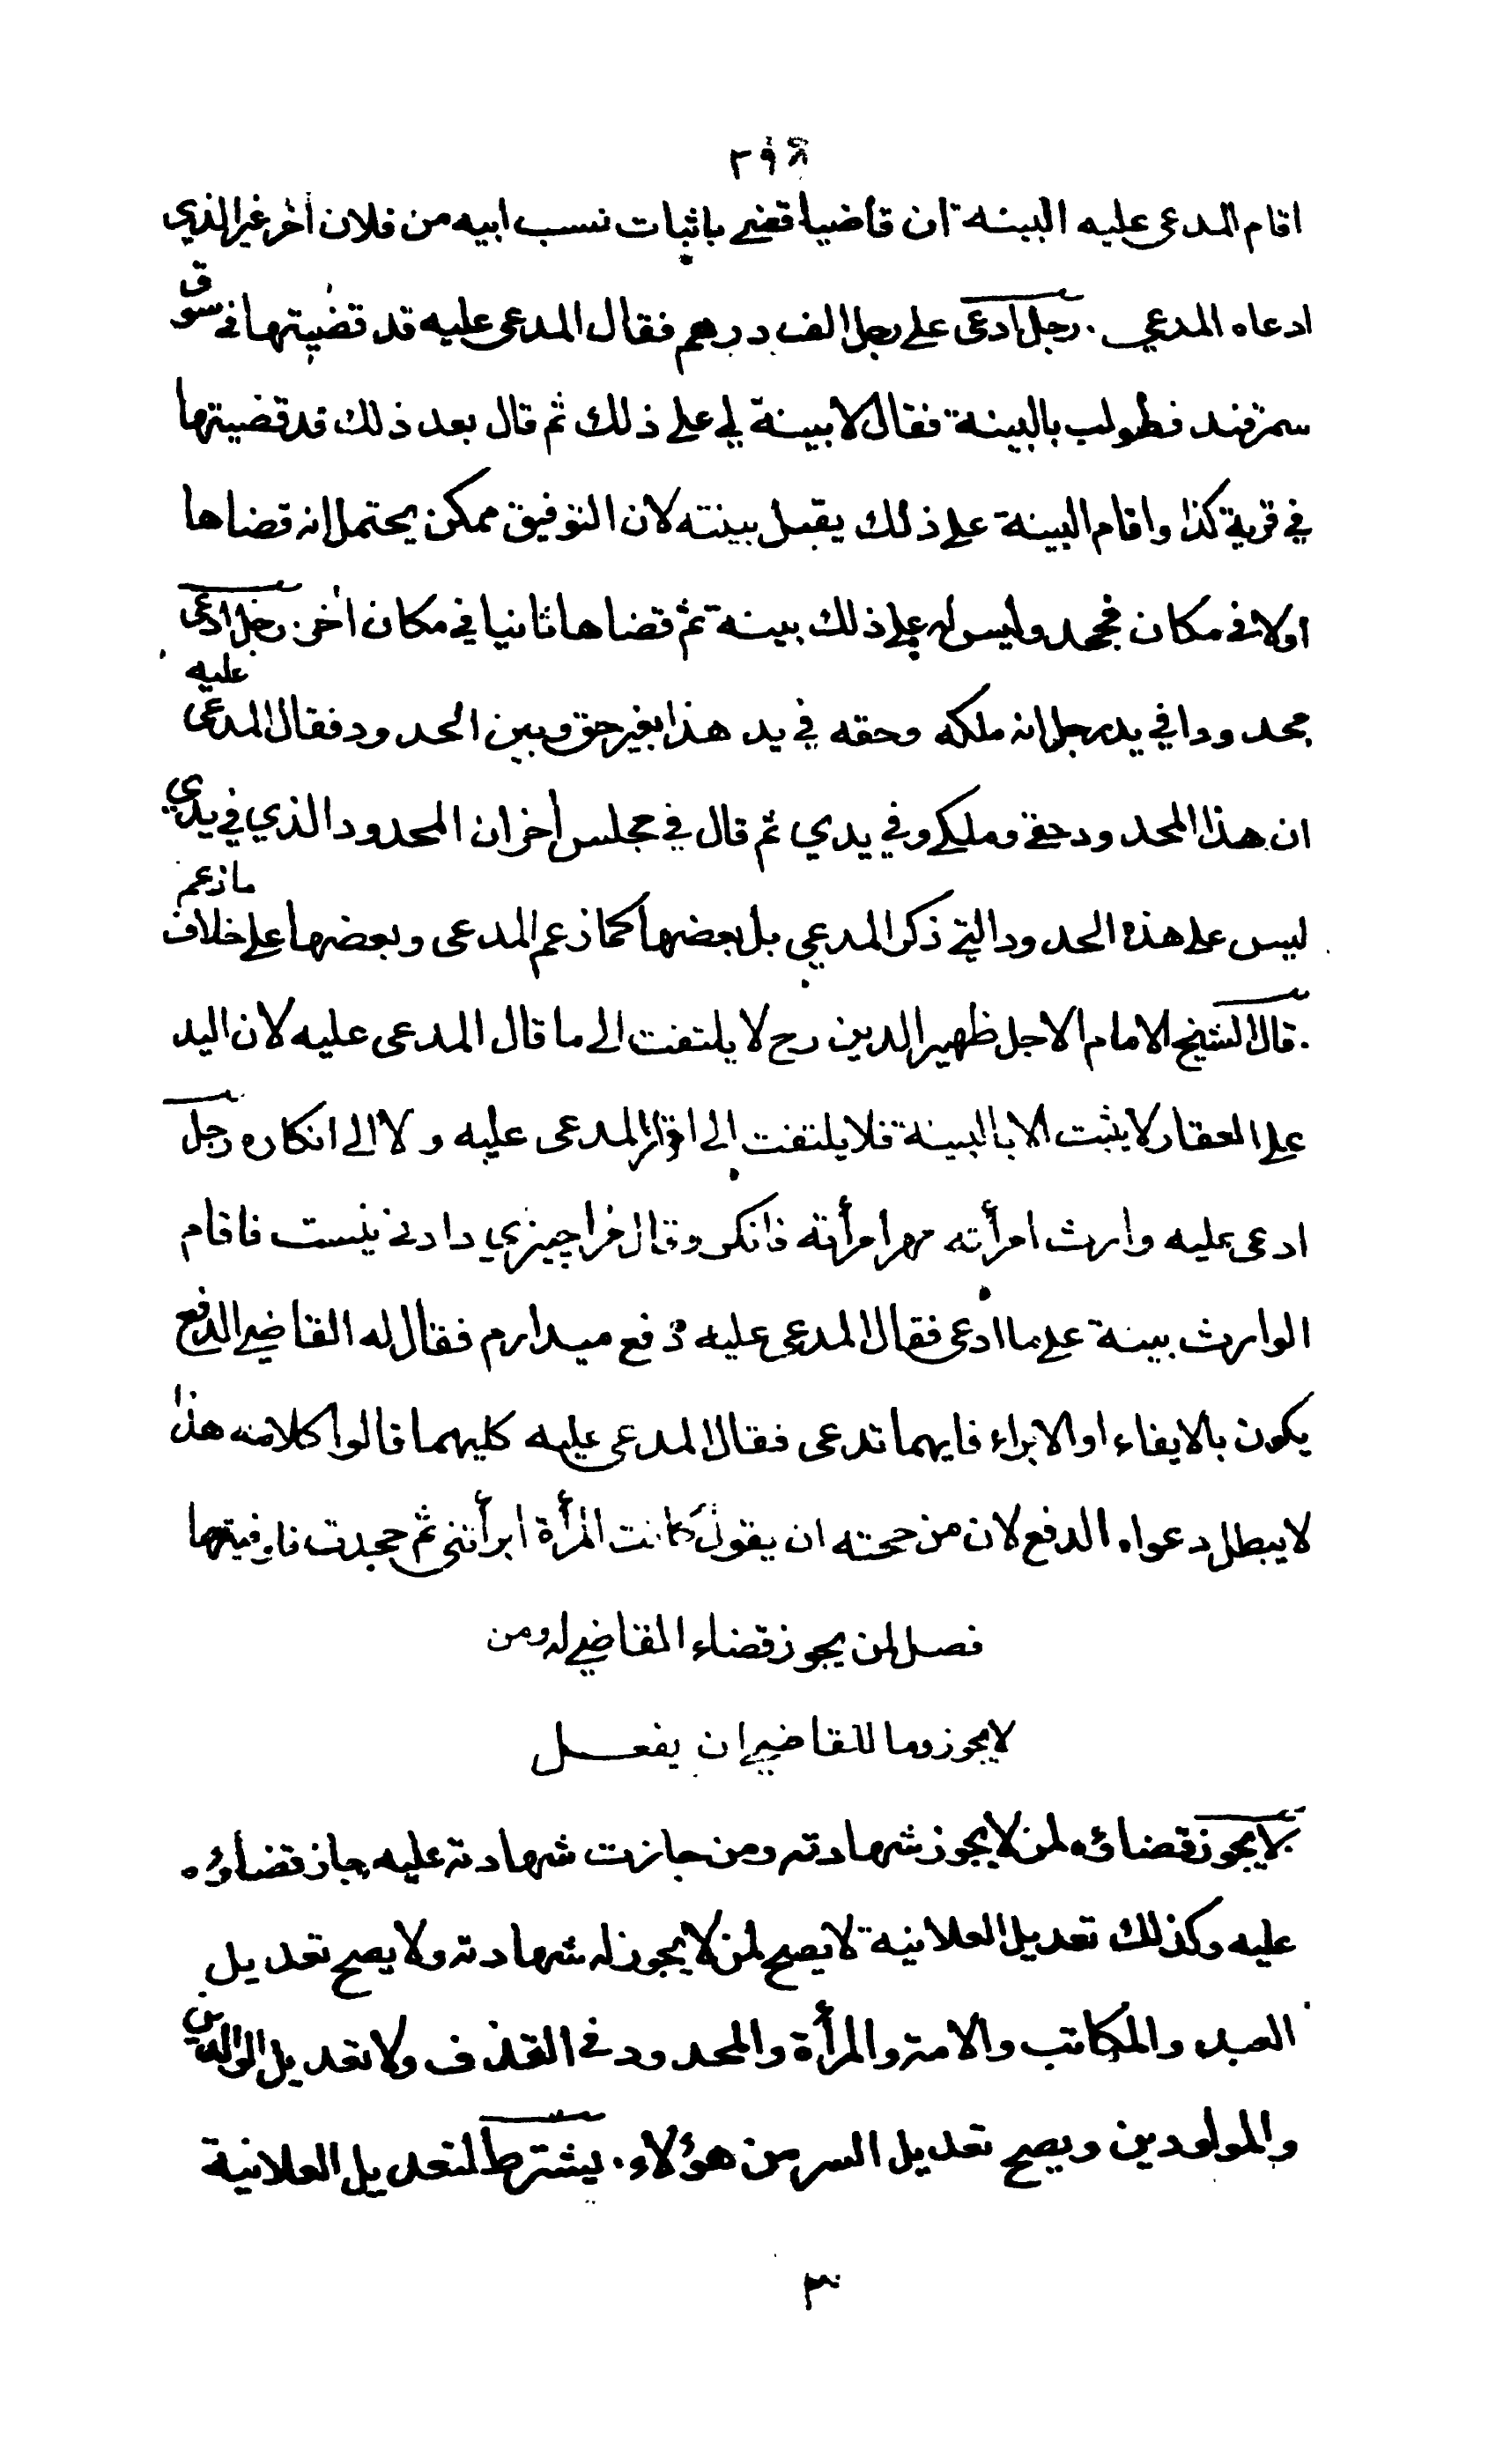 ٢٩٨
اقام المدعى عليه البينة ان قاضيا قضى باثبات نسب ابيه من فلان أخر غير الذي
ادعاه المدعي . رجل ادعى على رجل الف درهم فقال المدعى عليه قد قضيتها فى سوق
سمرقند فطولب بالبينة فقال لا بينة لي على ذلك ثم قال بعد ذلك قد قضيتها
في قرية كذا واقام البينة على ذلك يقبل بينته لان التوفيق ممكن يحتمل انه قضاها
اولا فى مكان فجحد وليس له على ذلك بينة ثم قضاها ثانيا في مكان أخر . رجل ادعى
محدودا في يد رجل انه ملكه وحقه في يد هذا بغير حق وبين الحدود فقال المدعى عليه
ان هذا المحدود حقي وملكي وفي يدي ثم قال في مجلس أخر ان المحدود الذي في يدي
ليس على هذه الحدود التي ذكر المدعي بل بعضها كما زعم المدعى وبعضها على خلاف ما زعم
. قال الشيخ الامام الاجل ظهير الدين رح لا يلتفت الى ما قال المدعى عليه لان اليد
على العقار لا يثبت الا بالبينة فلا يلتفت الى اقرار المدعى عليه ولا الى انكاره رجل
ادعى عليه وارث امرأته مهر امرأته فانكر وقال مرا چيزي دادنى نيست فاقام
الوارث بينة على ما ادعى فقال المدعى عليه دفع ميدارم فقال له القاضي الدفع
يكون بالايفاء او الابراء فايهما تدعى فقال المدعى عليه كليهما قالوا كلامه هذا
لا يبطل دعواه الدفع لان من حجته ان يقول كانت المرأة ابرأتنى ثم جحدت فاوفيتها
فصل لمن يجوز قضاء القاضي له ومن
لا يجوز وما للقاضي ان يفعل
لا يجوز قضاؤه لمن لا يجوز شهادته ومن جازت شهادته عليه جاز قضاؤه
عليه وكذلك تعديل العلانية لا يصح لمن لا يجوز له شهادته ولا يصح تعديل
العبد والمكاتب والامة والمرأة والمحدود فى القذف ولا تعديل الوالدين
والمولودين ويصح تعديل السر من هؤلاء . يشترط لتعديل العلانية